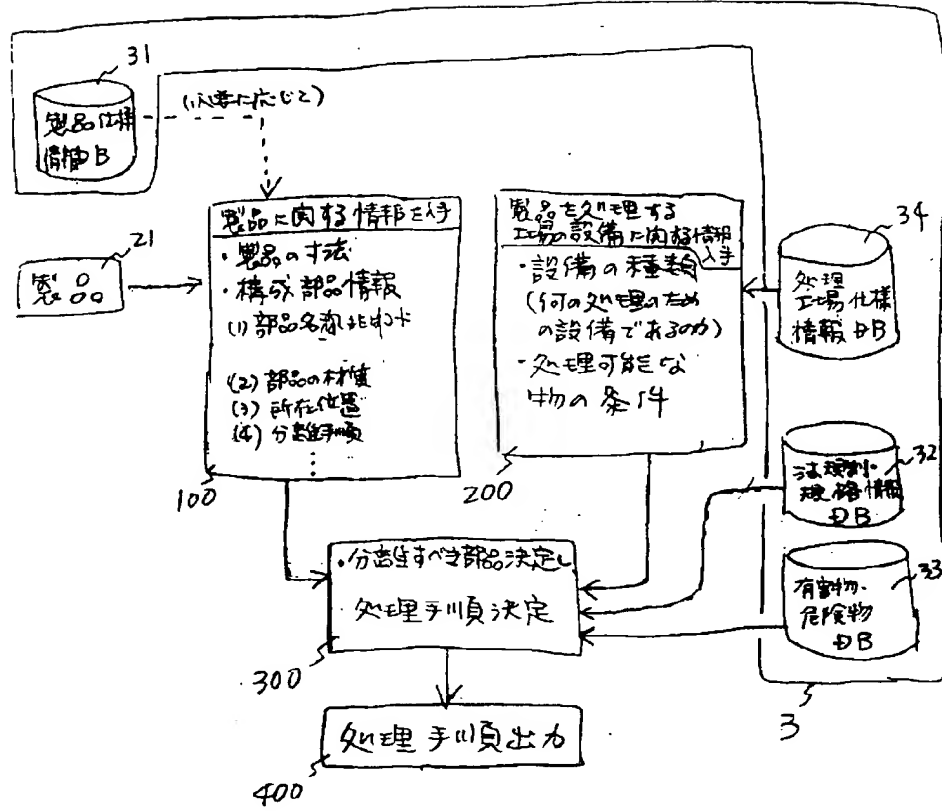 31
製品仕様
情報DB
(必要に応じて)
21
製品
製品に関する情報を入手
・製品の寸法
・構成部品情報
(1) 部品名称
(2) 部品の材質
(3) 所在位置
(4) 分離手順
100
製品を処理する
工場の設備に関する情報
入手
・設備の種類
(何の処理のため
の設備であるのか)
・処理可能な
物の条件
200
34
処理
工場仕様
情報DB
32
法規制・
規格情報
DB
33
有害物・
危険物
DB
3
・分離すべき部品決定し
処理手順決定
300
処理手順出力
400